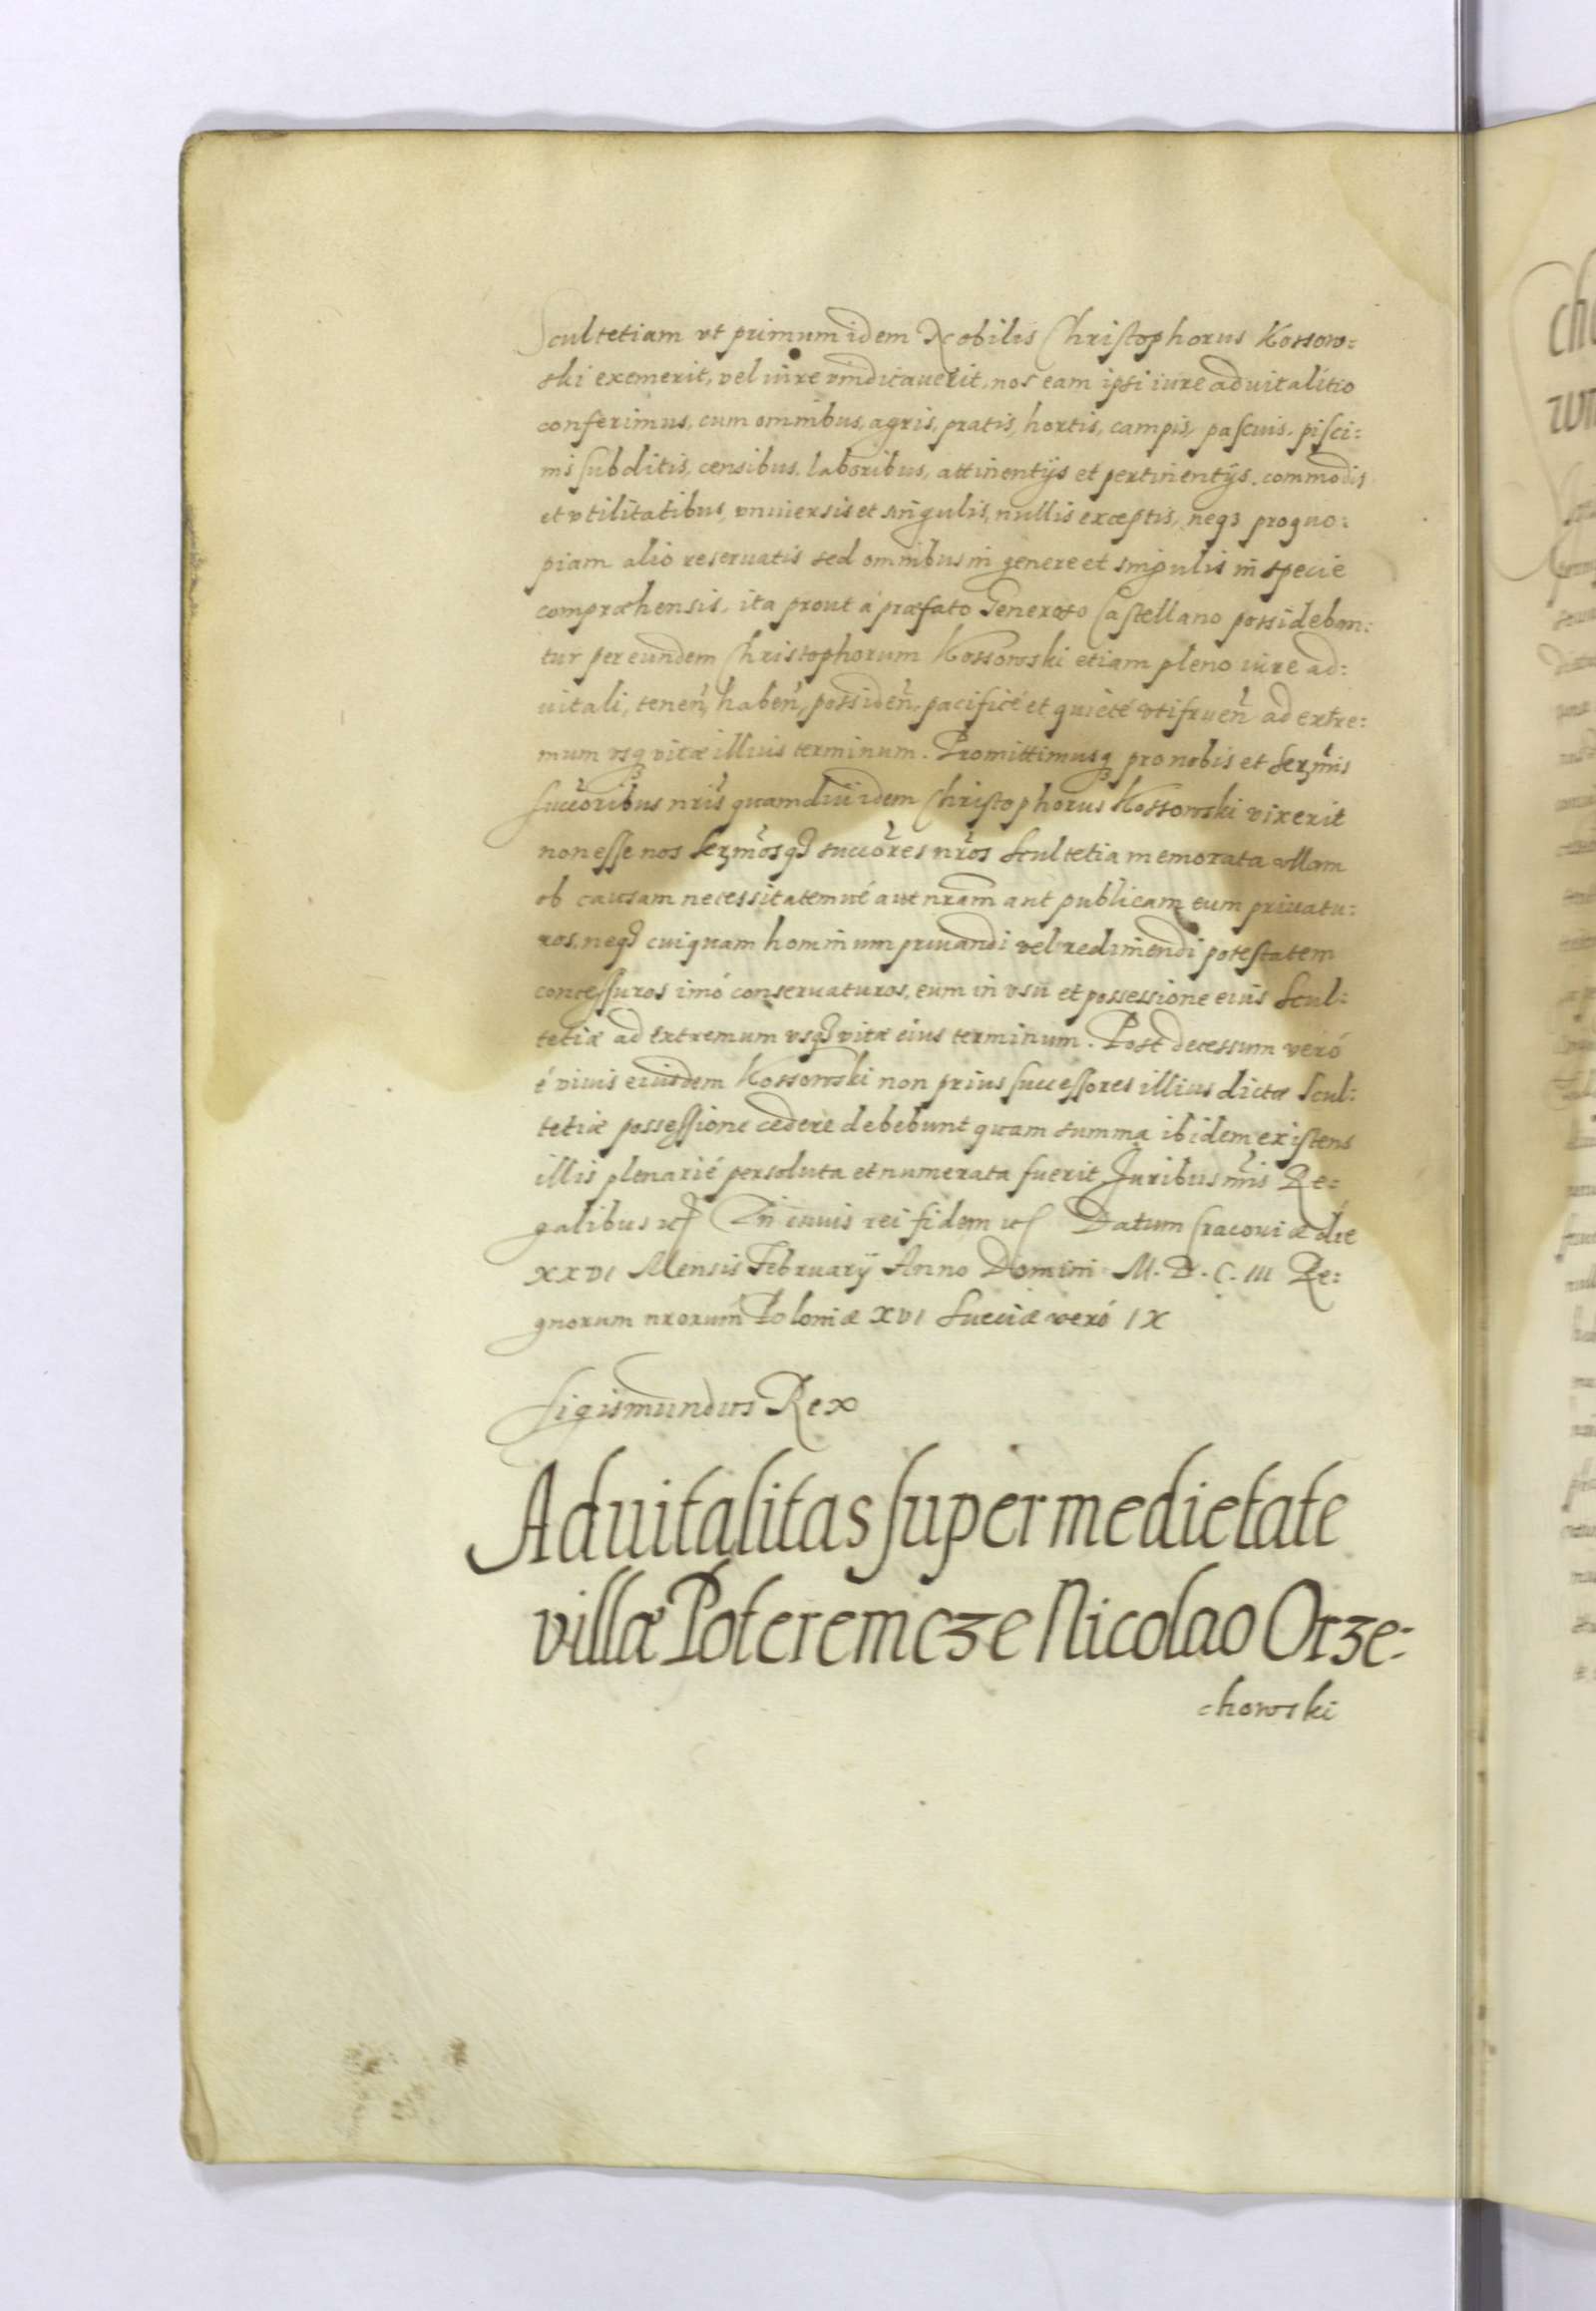 Scultetiam vt primum idem Nobilis Christophorus Kossow:
ski exemerit, vel iure vindicauerit, nos eam ipsi iure aduitalitio
conferimus, cum omnibus, agris, pratis, hortis, campis, pascuis. pisci:
nis subditis, censibus. laboribus, attinentijs et pertinentijs. commodis
et vtilitatibus, vniuersis et singulis, nullis exceptis, neqз proquo:
piam alio reseruatis sed omnibus in genere et singulis in specie
compræhensis, ita prout á præfato Generoso Castellano posside ban:
tur per eundem Christophorum Kossowski etiam pleno iure ad:
uitali, tenen̄, haben̄, possiden̄, pacificé et quieté vtifruen̄ ad extre:
mum vsqз vitæ illius terminum. Promittimusqз pro nobis et Serm̄is
succōribus nr̄is quamdiu idem Christophorus Kossowski vixerit
non esse nos Serm̄osqз succōres nr̄os Scultetia memorata vllam
ob causam necessitatemué aut nr̄am aut publicam eum priuatu:
ros, neqз cuiquam hominum priuandi vel redimendi potestatem
concessuros imó conseruaturos, eum in vsu et possessione eius Scul:
tetiæ ad extremum vsqз vitæ eius terminum. Post decessum veró
é viuis eiusdem Kossowski non prius successores illius dictæ Scul:
tetiæ possessione cedere debebunt quam summa ibidem existens
illis plenarié persoluta et numerata fuerit Juribus nr̄is Re:
galibus etc In cuius rei fidem etc Datum Cracouiæ die
XXVI Mensis Februarij Anno Domini M. D. C. III Re:
gnorum nrorum̄ Poloniæ XVI Sueciæ veró IX
Sigismundus Rex
Aduitalitas super medietate
villæ Poteremcze Nicolao Orze-
chowski